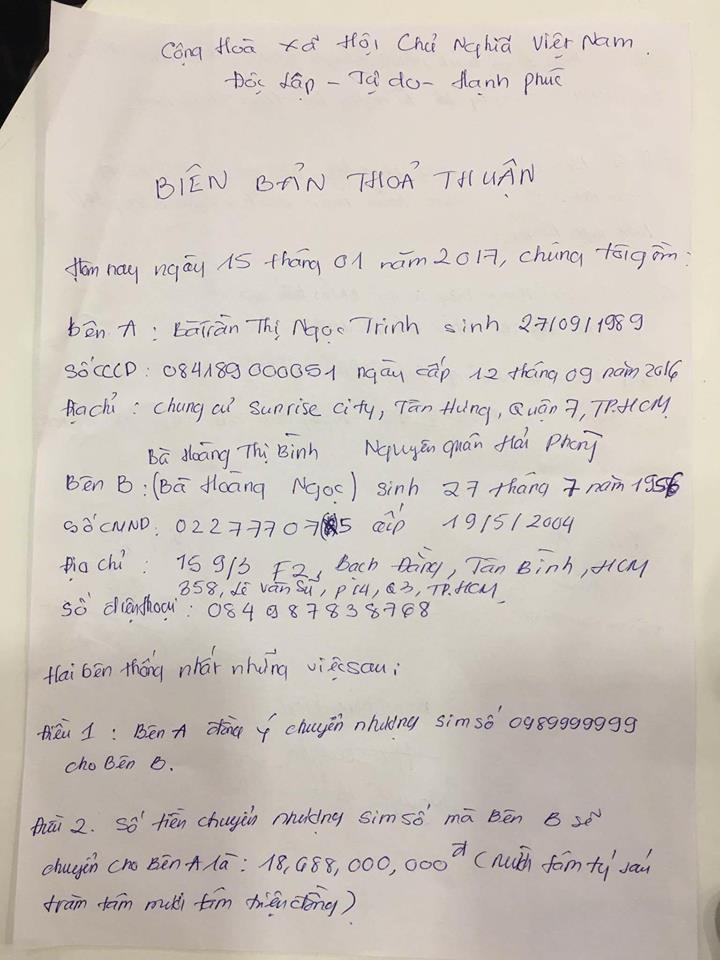 Cộng Hoà Xã Hội Chủ Nghĩa Việt Nam.
Độc Lập - Tự do - Hạnh phúc
BIÊN BẢN THOẢ THUẬN
Hôm nay ngày 15 tháng 01 năm 2017, chúng tôi gồm:
Bên A: Bà Trần Thị Ngọc Trinh sinh 27/09/1989
Số CCCD: 084189000051 ngày cấp 12 tháng 09 năm 2016
Địa chỉ: chung cư Sunrise City, Tân Hưng, Quận 7, TP.HCM
Bà Hoàng Thị Bình Nguyên quán Hải Phòng
Bên B: (Bà Hoàng Ngọc) sinh 27 tháng 7 năm 1956
Số CMND: cấp 19/5/2004
Địa chỉ: 159/3 F2, Bạch Đằng, Tân Bình, HCM
358, Lê Văn Sỹ, P14, Q3, TP.HCM
Số điện thoại: 084 987838768
Hai bên thống nhất những việc sau:
Điều 1: Bên A đồng ý chuyển nhượng sim số 0989999999
cho Bên B.
Điều 2. Số tiền chuyển nhượng sim số mà Bên B sẽ
chuyển cho Bên A là: 18,688,000,000đ (Mười tám tỷ sáu
trăm tám mươi tám triệu đồng)